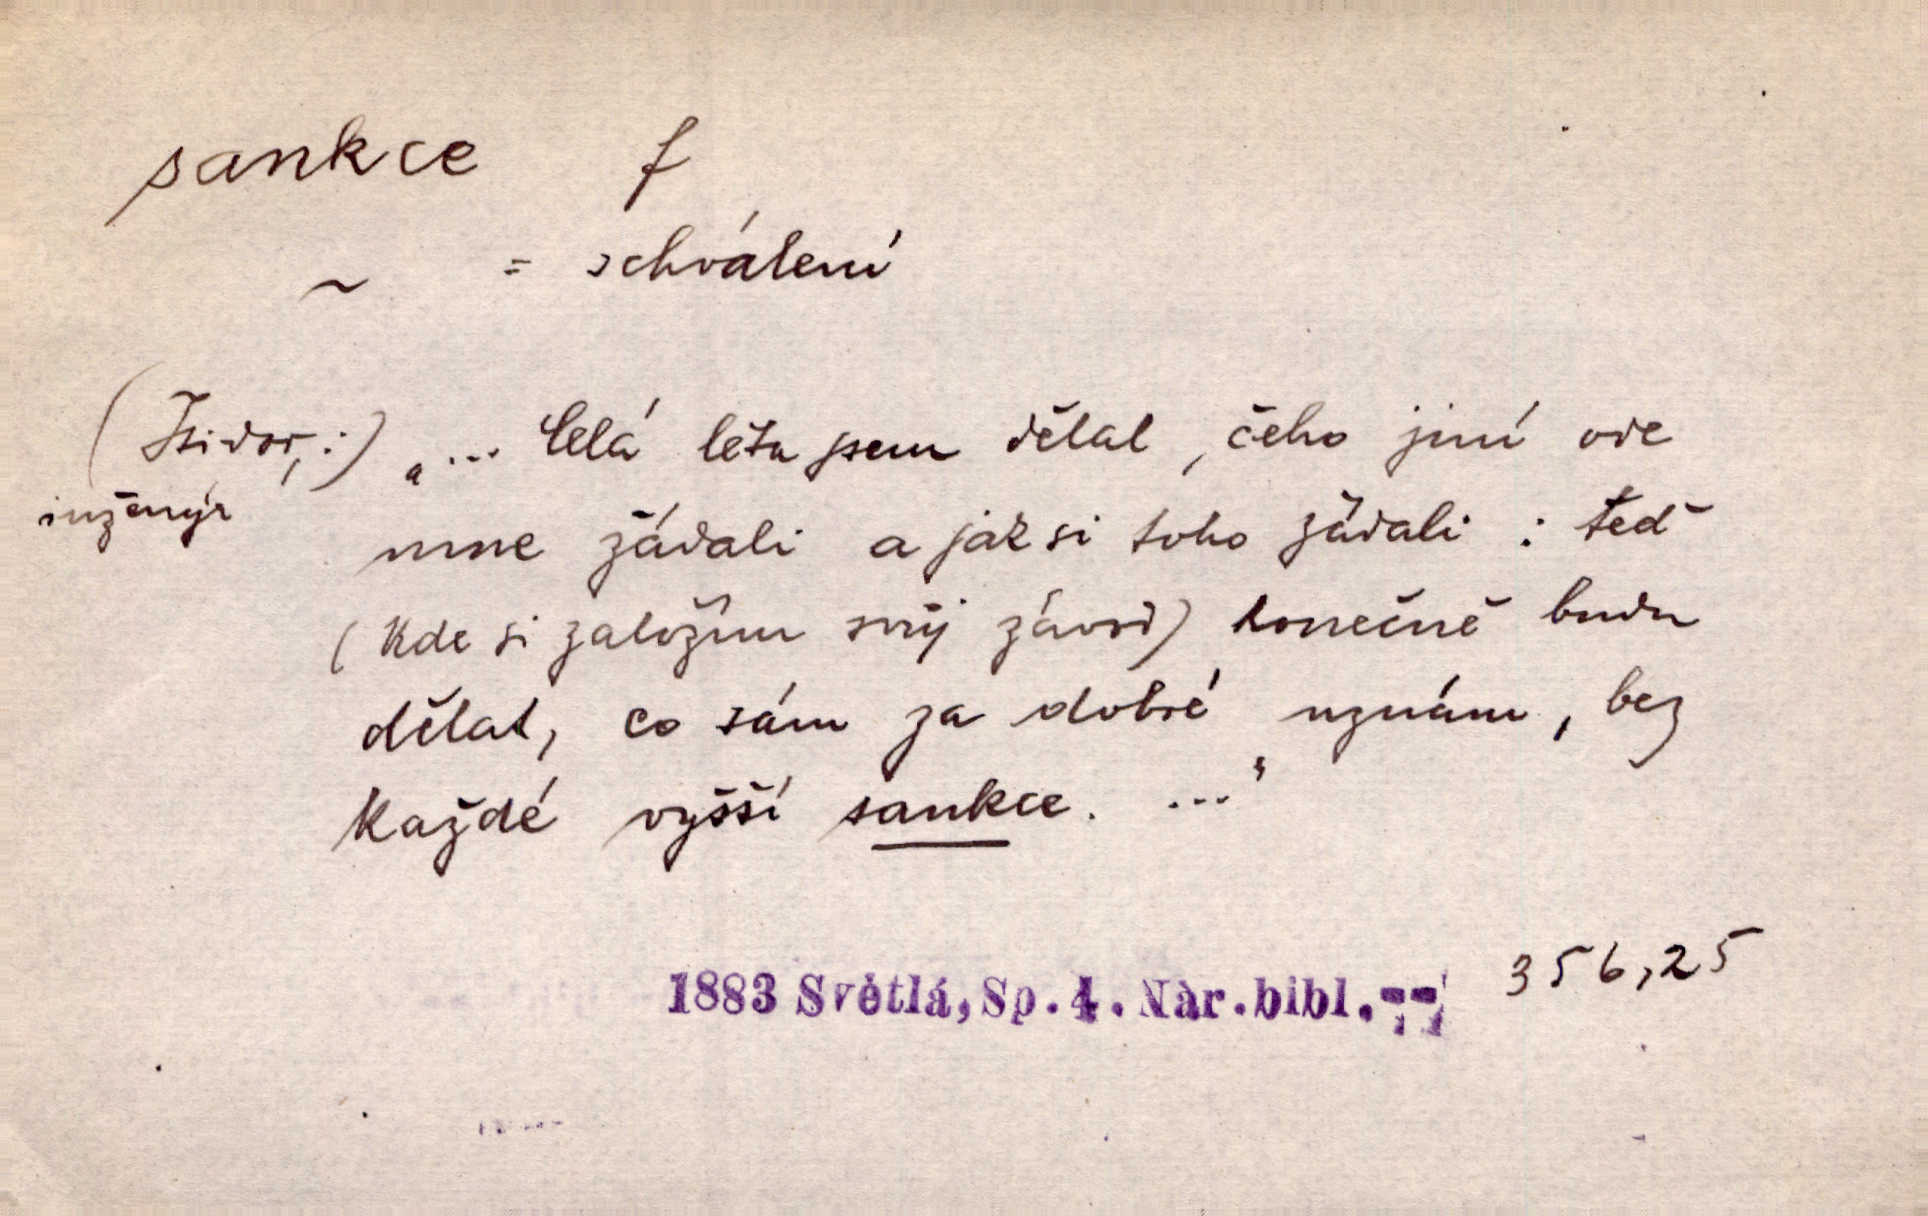 sankce f
~ = schválení
(Isidor,:) „... Celá léta jsem dělal, čeho jiní ode
inženýr
mne žádali a jak si toho žádali : teď
(kde si založím svůj závod) konečně budu
dělat, co sám za dobré uznám, bez
každé vyšší sankce. ..."
1883 Světlá, Sp. 4. Nár. bibl. 356,25